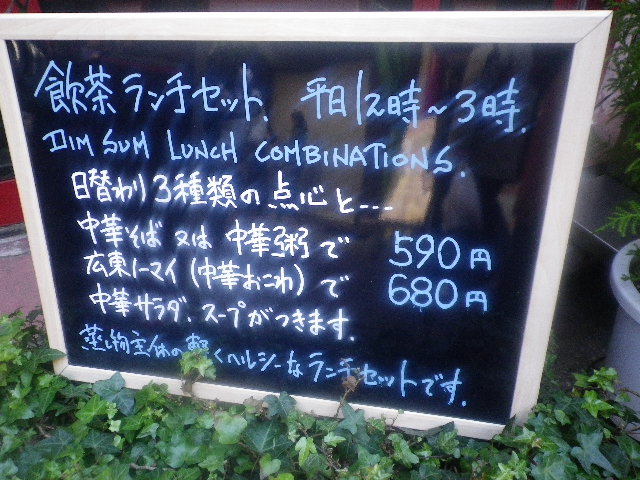 飲茶ランチセット. 平日12時~3時.
DIM SUM LUNCH COMBINATIONS.
日替わり3種類の点心と---
中華そば 又は 中華粥で 590円
広東ノーマイ(中華おこわ)で 680円
中華サラダ、スープがつきます.
蒸し物主体の軽くヘルシーなランチセットです.